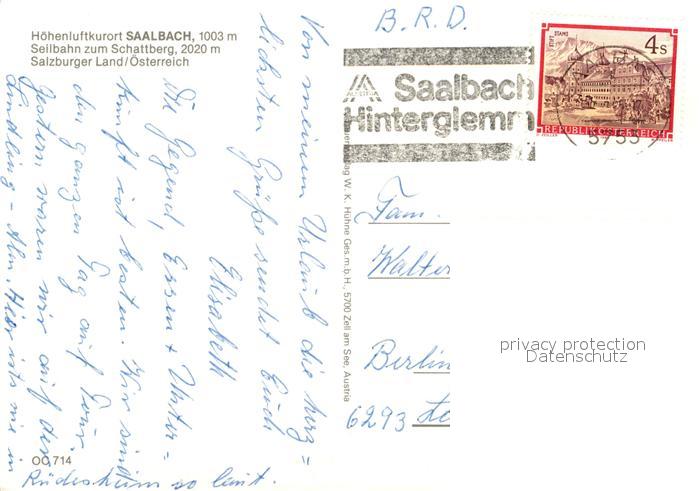 Höhenluftkurort SAALBACH, 1003 m
Seilbahn zum Schattberg, 2020 m
Salzburger Land/Österreich
Von meinem Urlaub die herz=
lichsten Grüße sendet Euch
Elisabeth
Die Gegend, Essen + Unter=
kunft ist bestens. Wir sind
den ganzen Tag auf Tour
Gestern waren wir auf der
Lindling-Alm. Hier ists wie in
Rüdesheim so laut.
OC 714
W. K. Hühne Ges.m.b.H., 5700 Zell am See, Austria
B.R.D.
Saalbach
Hinterglemm
STIFT STAMS
4 S
REPUBLIK ÖSTERREICH
5753
Fam.
Walter
Berlin
6293
privacy protection
Datenschutz